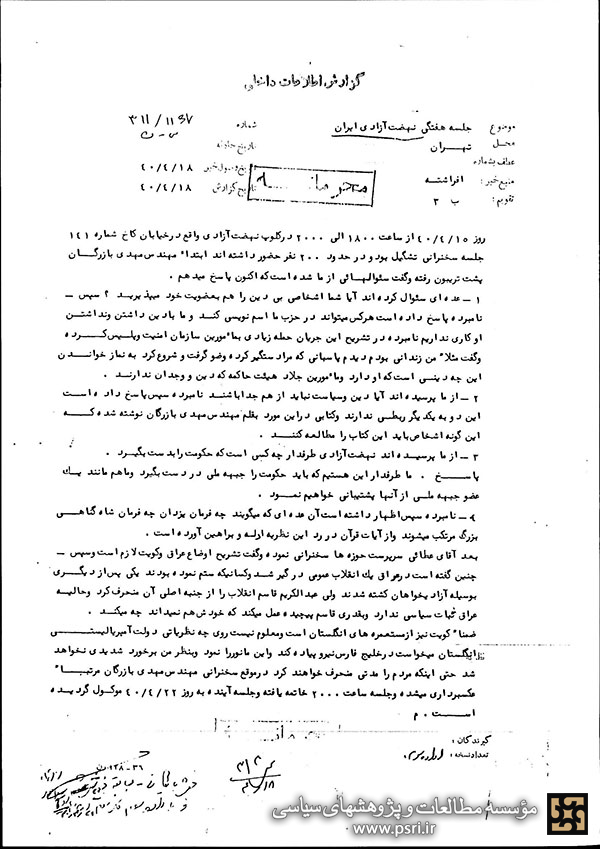 گزارش اطلاعات داخلی
موضوع : جلسه هفتگی نهضت آزادی ایران
شماره ۳۱۱/۱۱۶۷
محل : تهران
تاریخ حادثه
عطف بشماره
تاریخ وصول خبر ۴۰/۴/۱۸
منبع خبر : افراشته
تاریخ گزارش ۴۰/۴/۱۸
تقویم : ب ۳
محرمانه
روز ۴۰/۴/۱۵ از ساعت ۱۸۰۰ الی ۲۰۰۰ در کلوپ نهضت آزادی واقع در خیابان کاخ شماره ۱۴۱
جلسه سخنرانی تشکیل بود و در حدود ۲۰۰ نفر حضور داشته اند ابتداء مهندس مهدی بازرگان
پشت تریبون رفته و گفت سئوالهائی از ما شده است که اکنون پاسخ میدهم .
۱ – عده ای سئوال کرده اند آیا شما اشخاصی بی دین را هم بعضویت خود میپذیرید ؟ سپس –
نامبرده پاسخ داده است هرکس میتواند در حزب ما اسم نویسی کند و ما بادین داشتن ونداشتن
او کاری نداریم نامبرده در تشریح این جریان حمله زیادی بمأمورین سازمان امنیت وپلیس کرده
وگفت مثلاً من زندانی بودم دیدم پاسبانی که مرا دستگیر کرده وضو گرفت و شروع کرد به نماز خواندن
این چه دینی است که او دارد وماٴمورین جلاد هیئت حاکمه که دین و وجدان ندارند .
۲ – از ما پرسیده اند آیا دین وسیاست نباید از هم جدا باشند نامبرده سپس پاسخ داده است
این دو به یکدیگر ربطی ندارند وکتابی در این مورد بقلم مهندس مهدی بازرگان نوشته شده که
این گونه اشخاص باید این کتاب را مطالعه کنند .
۳ – از ما پرسیده اند نهضت آزادی طرفدار چه کسی است که حکومت را بدست بگیرد .
پاسخ . ما طرفدار این هستیم که باید حکومت را جبهه ملی در دست بگیرد وما هم مانند یک
عضو جبهه ملی از آنها پشتیبانی خواهیم نمود .
۴ – نامبرده سپس اظهار داشته است آن عده ای که میگویند چه فرمان یزدان چه فرمان شاه گناهی
بزرگ مرتکب میشوند واز آیات قرآن در رد این نظریه ادله و براهین آورده است .
بعد آقای عطائی سرپرست حوزه ها سخنرانی نموده وگفت تشریح اوضاع عراق وکویت لازم است وسپس –
چنین گفته است در عراق یک انقلاب عمومی در گیر شد وکسانیکه ستم نموده بودند یکی پس از دیگری
بوسیله آزادیخواهان کشته شدند ولی عبدالکریم قاسم انقلاب را از جنبه اصلی آن منحرف کرد وحالیه
عراق ثبات سیاسی ندارد وبقدری قاسم پیچیده عمل میکند که خودش هم نمیداند چه میکند .
ضمناً کویت نیز از مستعمره های انگلستان است ومعلوم نیست روی چه نظریاتی دولت آمپریالیستی
انگلستان میخواست در خلیج فارس نیرو پیاده کند واین مانور را نمود وبنظر من برخورد شدیدی نخواهد
شد حتی اینکه مردم را مدتی منحرف خواهند کرد در موقع سخنرانی مهندس مهدی بازرگان مرتباً
عکسبرداری میشده وجلسه ساعت ۲۰۰۰ خاتمه یافته وجلسه آینده به روز ۴۰/۴/۲۲ موکول گردیده
است . م
گیرندگان :
تعداد نسخه :
مؤسسه مطالعات و پژوهشهای سیاسی
www.psri.ir